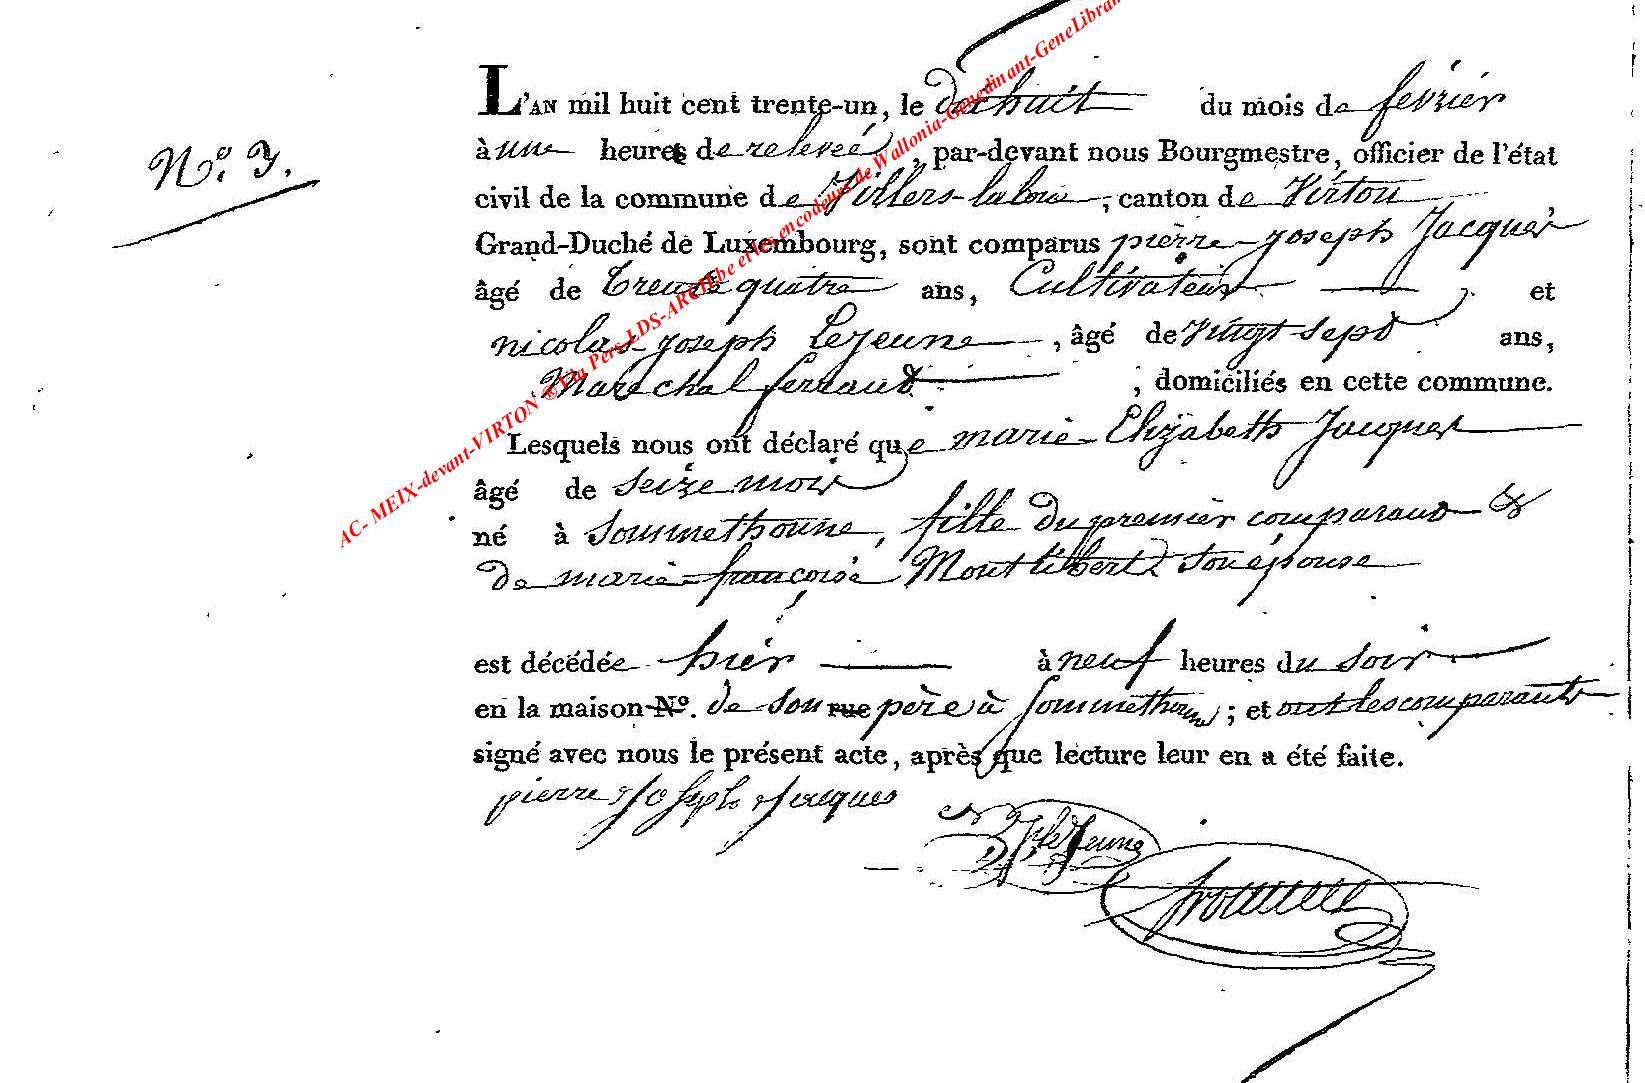 L'AN mil huit cent trente-un, le dixhuit du mois de février
N.º 7.
à une heures de relevée, par-devant nous Bourgmestre, officier de l'état
civil de la commune de Villers-laloue, canton de Virton,
Grand-Duché de Luxembourg, sont comparus pierre-joseph Jacques
âgé de trente quatre ans, Cultivateur, et
nicolas-joseph Lejeune, âgé de vingt-sept ans,
Marechal ferrant, domiciliés en cette commune.
Lesquels nous ont déclaré que marie-Elizabeth Jacques
âgé de seize mois
né à Sommethonne, fille du premier comparant &
de marie-françoise Montlibert son épouse
est décédée hier à neuf heures du soir
en la maison Nº. de son rue père à Sommethonne; et ont les comparants
signé avec nous le présent acte, après que lecture leur en a été faite.
pierre joseph jacques
LeJeune
AC- MEIX-devant-VIRTON ® Via Pers-LDS-ARCH.be et les encodeurs de Wallonia-Genedinant-GeneLibran